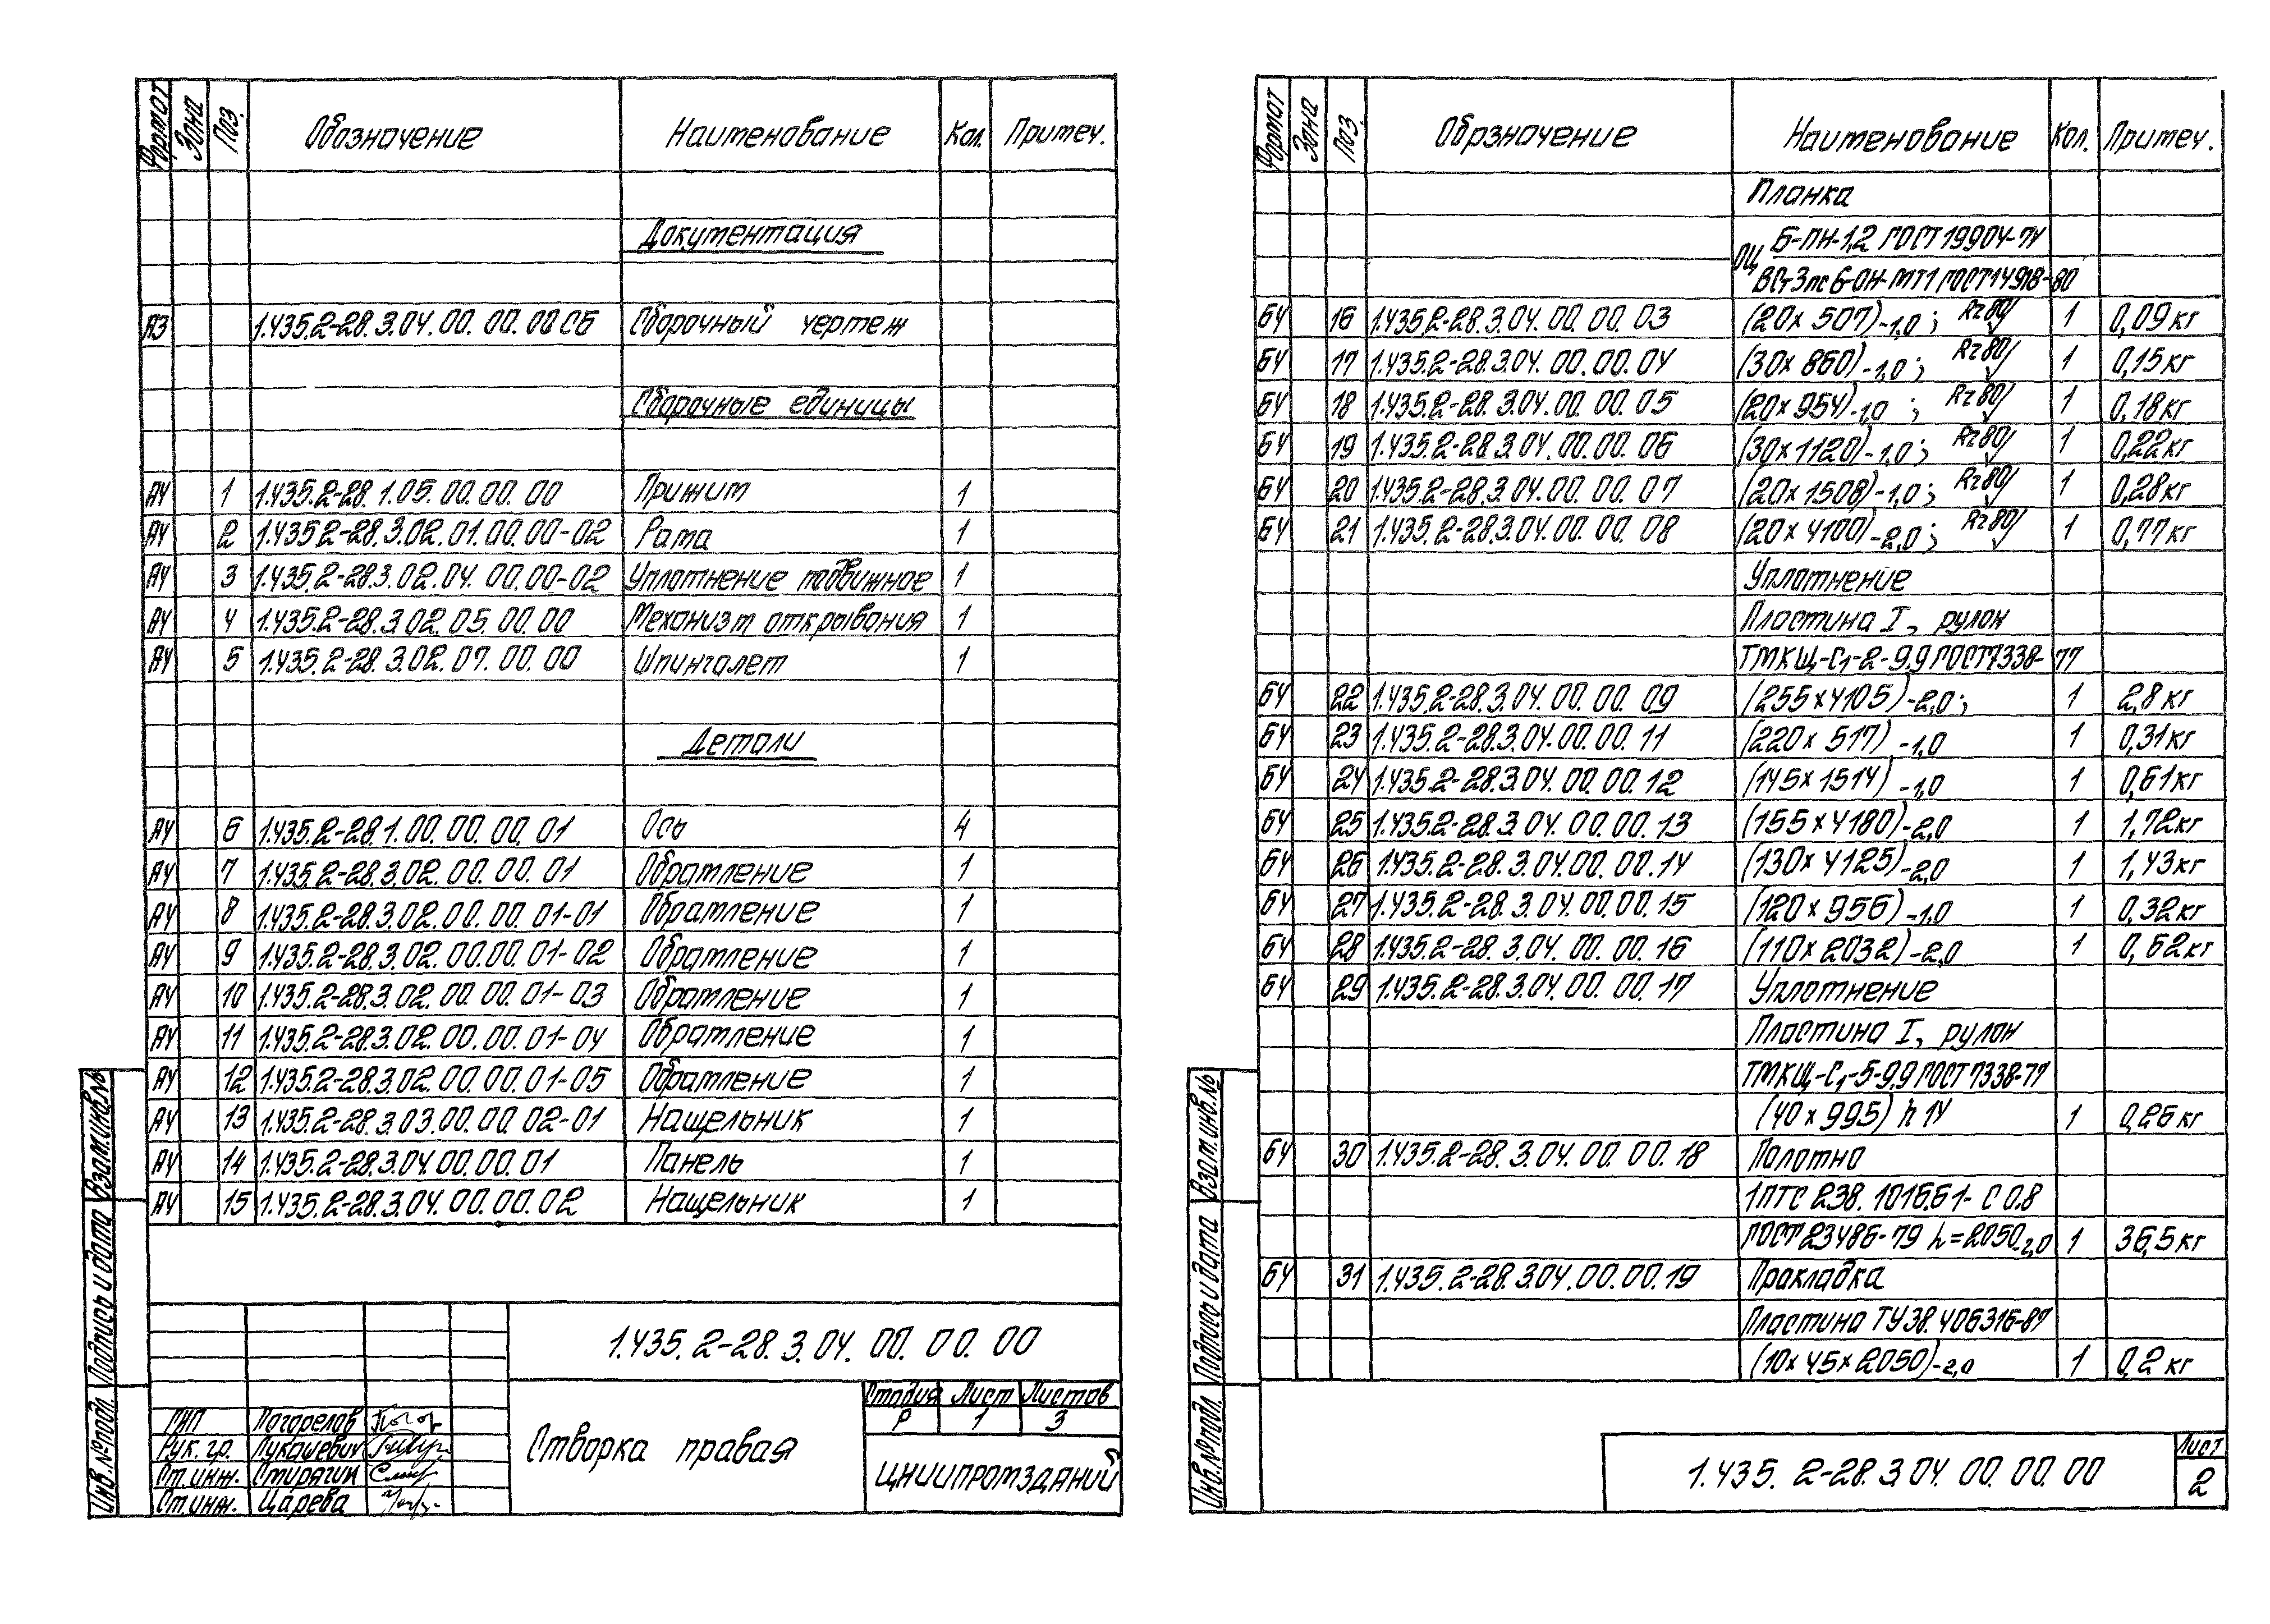 Формат Зона Поз. Обозначение Наименование Кол. Примеч.
Документация
А3 1.435.2-28.3.04.00.00.00 СБ Сборочный чертеж
Сборочные единицы
А4 1 1.435.2-28.1.05.00.00.00 Прижим 1
А4 2 1.435.2-28.3.02.01.00.00-02 Рама 1
А4 3 1.435.2-28.3.02.04.00.00-02 Уплотнение подвижное 1
А4 4 1.435.2-28.3.02.05.00.00 Механизм открывания 1
А4 5 1.435.2-28.3.02.07.00.00 Шпингалет 1
Детали
А4 6 1.435.2-28.1.00.00.00.01 Ось 4
А4 7 1.435.2-28.3.02.00.00.01 Обрамление 1
А4 8 1.435.2-28.3.02.00.00.01-01 Обрамление 1
А4 9 1.435.2-28.3.02.00.00.01-02 Обрамление 1
А4 10 1.435.2-28.3.02.00.00.01-03 Обрамление 1
А4 11 1.435.2-28.3.02.00.00.01-04 Обрамление 1
А4 12 1.435.2-28.3.02.00.00.01-05 Обрамление 1
А4 13 1.435.2-28.3.03.00.00.02-01 Нащельник 1
А4 14 1.435.2-28.3.04.00.00.01 Панель 1
А4 15 1.435.2-28.3.04.00.00.02 Нащельник 1
Взам.инв.№
Подпись и дата
Инв.№ подл.
1.435.2-28.3.04.00.00.00
Створка правая
Стадия Лист Листов
Р 1 3
ЦНИИПРОМЗДАНИЙ
ГИП Погорелов
Рук. гр. Лукашевич
Ст.инж. Стирягин
Ст.инж. Царева
Формат Зона Поз. Обрзначение Наименование Кол. Примеч.
Планка
ОЦ Б-ПН-1,2 ГОСТ 19904-74
ВСт3пс6-ОН-МТ1 ГОСТ 14918-80
БЧ 16 1.435.2-28.3.04.00.00.03 (20х507)-1,0; Rz80 1 0,09кг
БЧ 17 1.435.2-28.3.04.00.00.04 (30х860)-1,0; Rz80 1 0,15кг
БЧ 18 1.435.2-28.3.04.00.00.05 (20х954)-1,0; Rz80 1 0,18кг
БЧ 19 1.435.2-28.3.04.00.00.06 (30х1120)-1,0; Rz80 1 0,22кг
БЧ 20 1.435.2-28.3.04.00.00.07 (20х1508)-1,0; Rz80 1 0,28кг
БЧ 21 1.435.2-28.3.04.00.00.08 (20х4100)-2,0; Rz80 1 0,77кг
Уплотнение
Пластина I, рулон
ТМКЩ-С1-2-9,9 ГОСТ 7338-77
БЧ 22 1.435.2-28.3.04.00.00.09 (255х4105)-2,0; 1 2,8кг
БЧ 23 1.435.2-28.3.04.00.00.11 (220х517)-1,0 1 0,31кг
БЧ 24 1.435.2-28.3.04.00.00.12 (145х1514)-1,0 1 0,61кг
БЧ 25 1.435.2-28.3.04.00.00.13 (155х4180)-2,0 1 1,72кг
БЧ 26 1.435.2-28.3.04.00.00.14 (130х4125)-2,0 1 1,43кг
БЧ 27 1.435.2-28.3.04.00.00.15 (120х956)-1,0 1 0,32кг
БЧ 28 1.435.2-28.3.04.00.00.16 (110х2032)-2,0 1 0,62кг
БЧ 29 1.435.2-28.3.04.00.00.17 Уплотнение
Пластина I, рулон
ТМКЩ-С1-5-9,9 ГОСТ 7338-77
(40х995) h14 1 0,26кг
БЧ 30 1.435.2-28.3.04.00.00.18 Полотно
1ПТС 238.1016.61-С0.8
ГОСТ 23486-79 L=2050-2,0 1 36,5кг
БЧ 31 1.435.2-28.3.04.00.00.19 Прокладка
Пластина ТУ38.406316-87
(10х45х2050)-2,0 1 0,2кг
Взам.инв.№
Подпись и дата
Инв.№ подл.
1.435.2-28.3.04.00.00.00
Лист
2